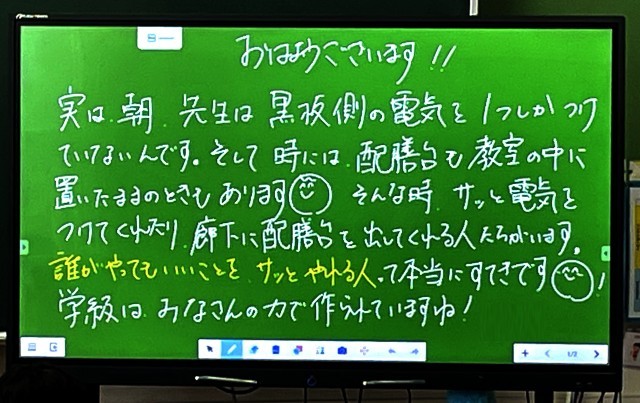 おはようございます!!
実は、朝、先生は黒板側の電気を1つしかつけ
ていないんです。そして時には、配膳台も教室の中に
置いたままのときもあります そんな時、サッと電気を
つけてくれたり、廊下に配膳台を出してくれる人たちがいます。
誰がやってもいいことを、サッとやれる人って本当にすてきです!
学級は、みなさんの力で作られていますね!
1/2